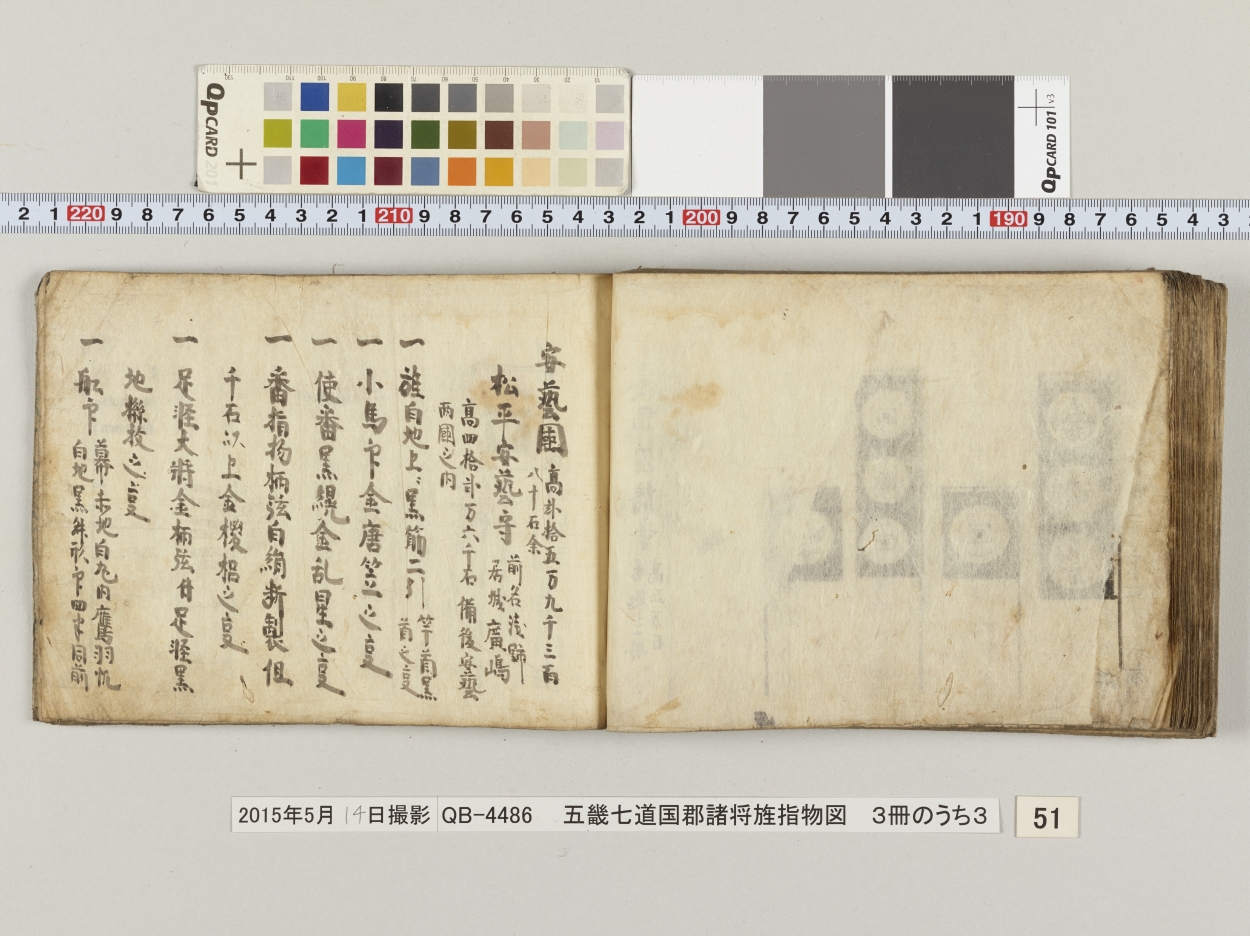 QPCARD 201
QPCARD 101 v3
2 1 220 9 8 7 6 5 4 3 2 1 210 9 8 7 6 5 4 3 2 1 200 9 8 7 6 5 4 3 2 1 190 9 8 7 6 5 4 3
安藝國 高弐拾五万九千三百
八十石余
松平安藝守 前名浅野
居城廣嶋
高四拾弐万六千石 備後安藝
両國之内
一 旌白地上ニ黒筋二引 竿首黒
首之夏
一 小馬印金唐笠之夏
一 使番黒縨金乱星之夏
一 番指物柄弦白絹断製但
千石以上金之夏
一 足軽大将金柄弦 足軽黒
地之夏
一 船印 幕赤地白丸内鷹羽
白地黒 印四半同前
2015年5月14日撮影 QB-4486 五畿七道国郡諸将旌指物図 3冊のうち3
51